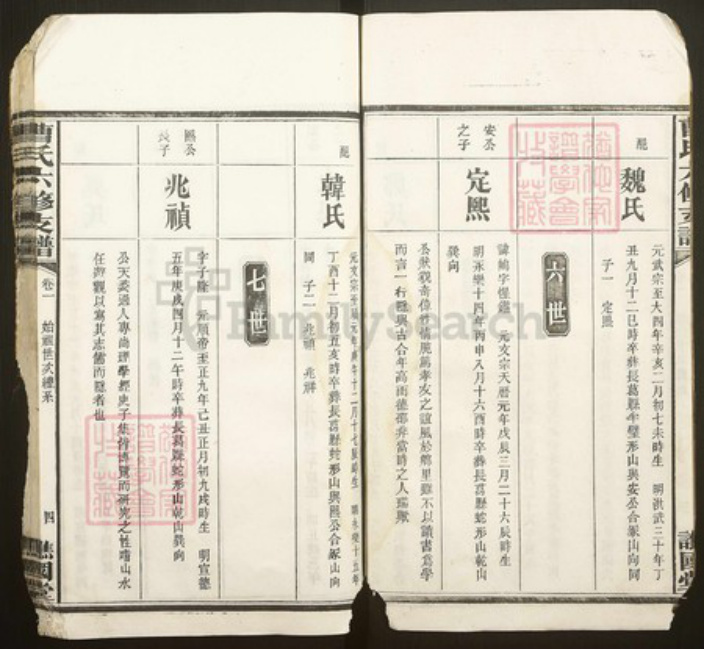 配
魏氏
元武宗至大四年辛亥二月初七未時生 明洪武三十年丁
丑九月十二巳時卒葬長葛縣牛壁形山與安公合冢山向同
子一 定熙
六世
安公
之子
定熙
諱 字惺 元文宗天曆元年戊辰三月二十六辰時生
明永樂十四年丙申八月十六酉時卒葬長葛縣蛇形山乾山
巽向
公 觀奇偉 性情 篤孝友之誼風於鄉里雖不以讀書為學
而言一行 與古合年高 德 非當時之人 歟
配
韓氏
元文宗至順元年庚午十二月十七辰時生 明永樂十五年
丁酉十二月初五亥時卒葬長葛縣蛇形山與熙公合冢山向
同 子二 兆禎 兆祥
七世
熙公
長子
兆禎
字子隆 元順帝至正九年己丑正月初九戌時生 明宣德
五年庚戌四月十二午時卒葬長葛縣蛇形山乾山巽向
公天姿過人專尚理學經史子集皆博覽而研究之性嗜山水
任遊觀以寓其志儒而隱者也
曹氏六修支譜
卷一 始祖世次總系
四
譙國堂
FamilySearch